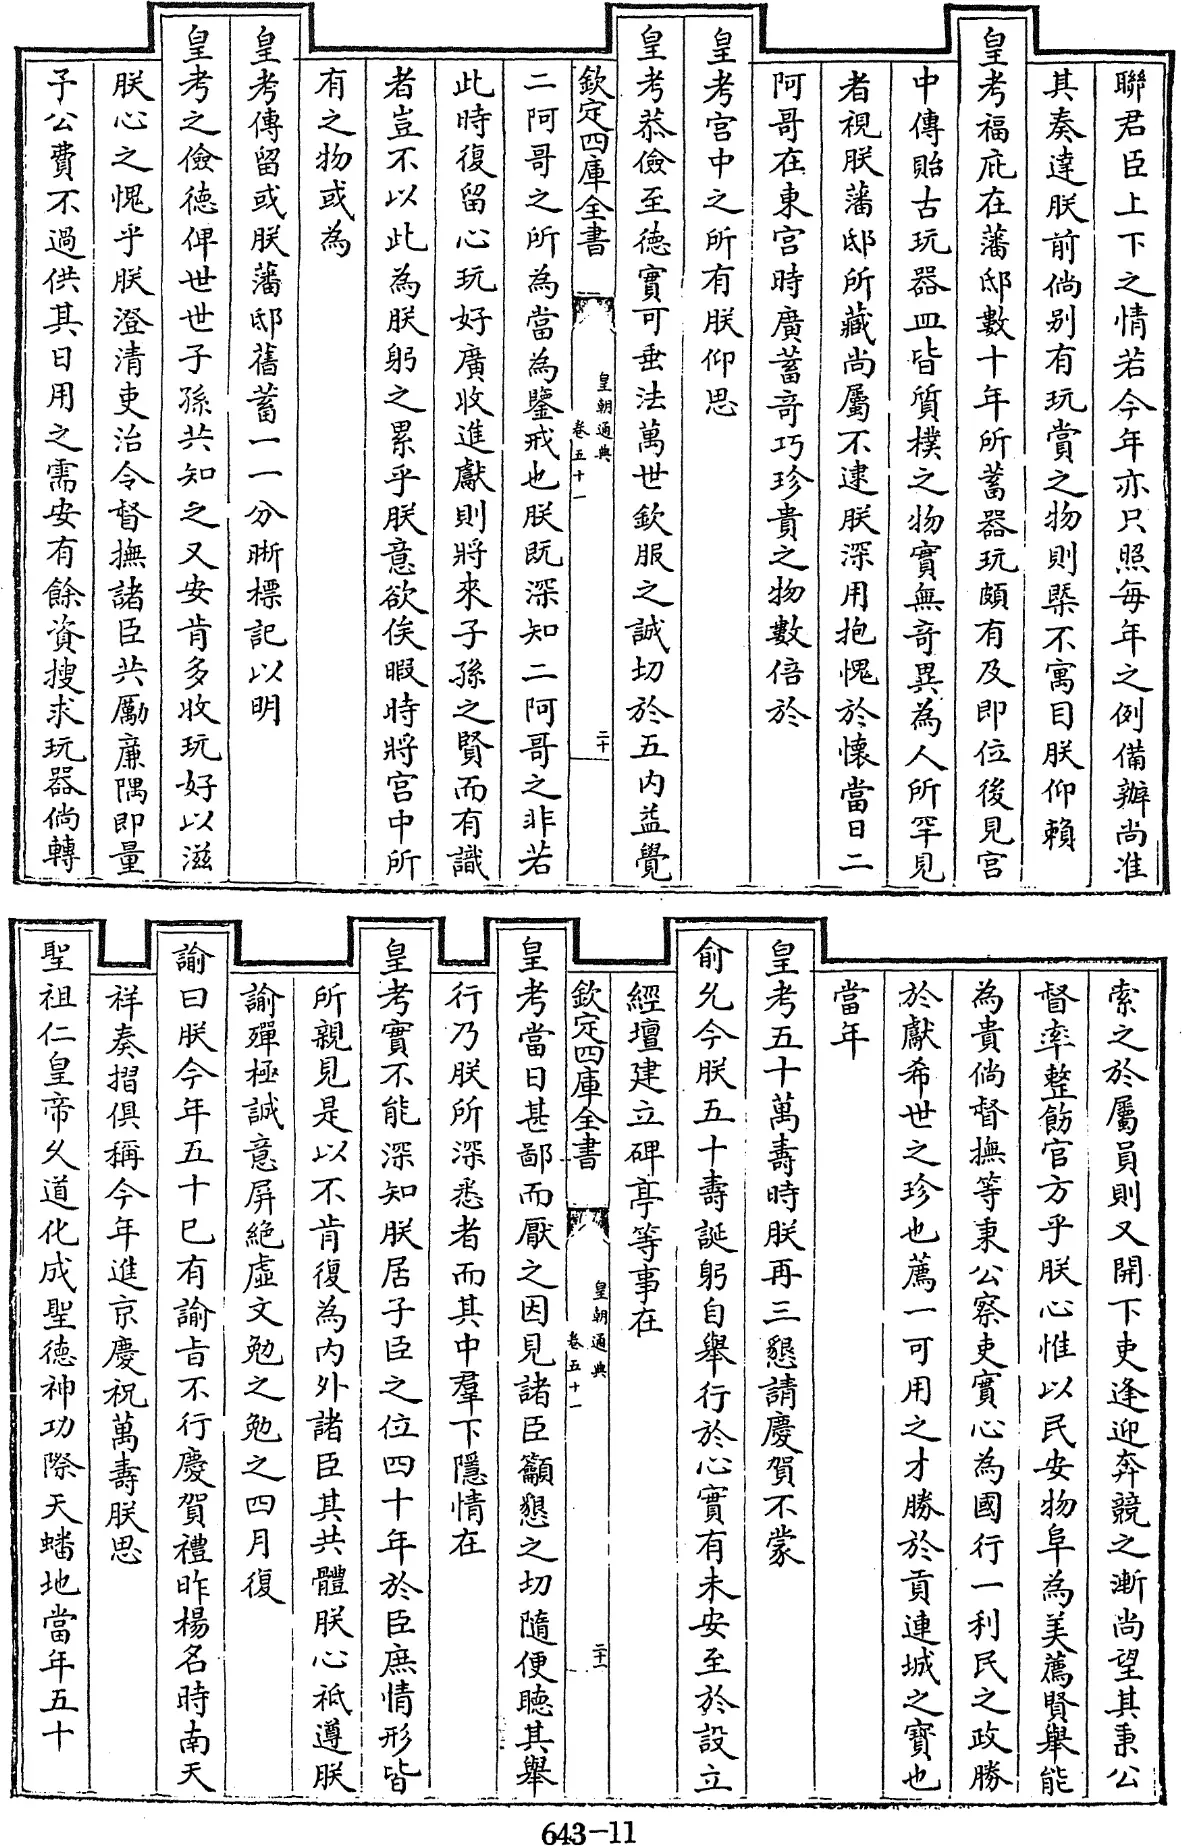 聯君臣上下之情若今年亦只照每年之例備辦尚准
其奏達朕前倘别有玩賞之物則槩不寓目朕仰賴
皇考福庇在藩邸數十年所蓄器玩頗有及即位後見宫
中傳貽古玩器皿皆質樸之物實無竒異為人所罕見
者視朕藩邸所藏尚屬不逮朕深用抱愧於懷當日二
阿哥在東宫時廣蓄竒巧珍貴之物數倍於
皇考宫中之所有朕仰思
皇考恭儉至德實可垂法萬世欽服之誠切於五内益覺
欽定四庫全書
皇朝通典
卷五十一
二十
二阿哥之所為當為鑒戒也朕既深知二阿哥之非若
此時復留心玩好廣收進獻則將來子孫之賢而有識
者豈不以此為朕躬之累乎朕意欲俟暇時將宫中所
有之物或為
皇考傳留或朕藩邸舊蓄一一分晰標記以明
皇考之儉德俾世世子孫共知之又安肯多收玩好以滋
朕心之愧乎朕澄清吏治令督撫諸臣共勵廉隅即量
子公費不過供其日用之需安有餘資搜求玩器倘轉
索之於屬員則又開下吏逢迎奔競之漸尚望其秉公
督率整飭官方乎朕心惟以民安物阜為美薦賢舉能
為貴倘督撫等秉公察吏實心為國行一利民之政勝
於獻希世之珍也薦一可用之才勝於貢連城之寳也
當年
皇考五十萬壽時朕再三懇請慶賀不蒙
俞允今朕五十壽誕躬自舉行於心實有未安至於設立
經壇建立碑亭等事在
欽定四庫全書
皇朝通典
卷五十一
二十一
皇考當日甚鄙而厭之因見諸臣籲懇之切隨便聽其舉
行乃朕所深悉者而其中羣下隱情在
皇考實不能深知朕居子臣之位四十年於臣庶情形皆
所親見是以不肯復為内外諸臣其共體朕心祗遵朕
諭殫極誠意屏絶虚文勉之勉之四月復
諭曰朕今年五十已有諭旨不行慶賀禮昨楊名時南天
祥奏摺俱稱今年進京慶祝萬壽朕思
聖祖仁皇帝久道化成聖德神功際天蟠地當年五十
643-11